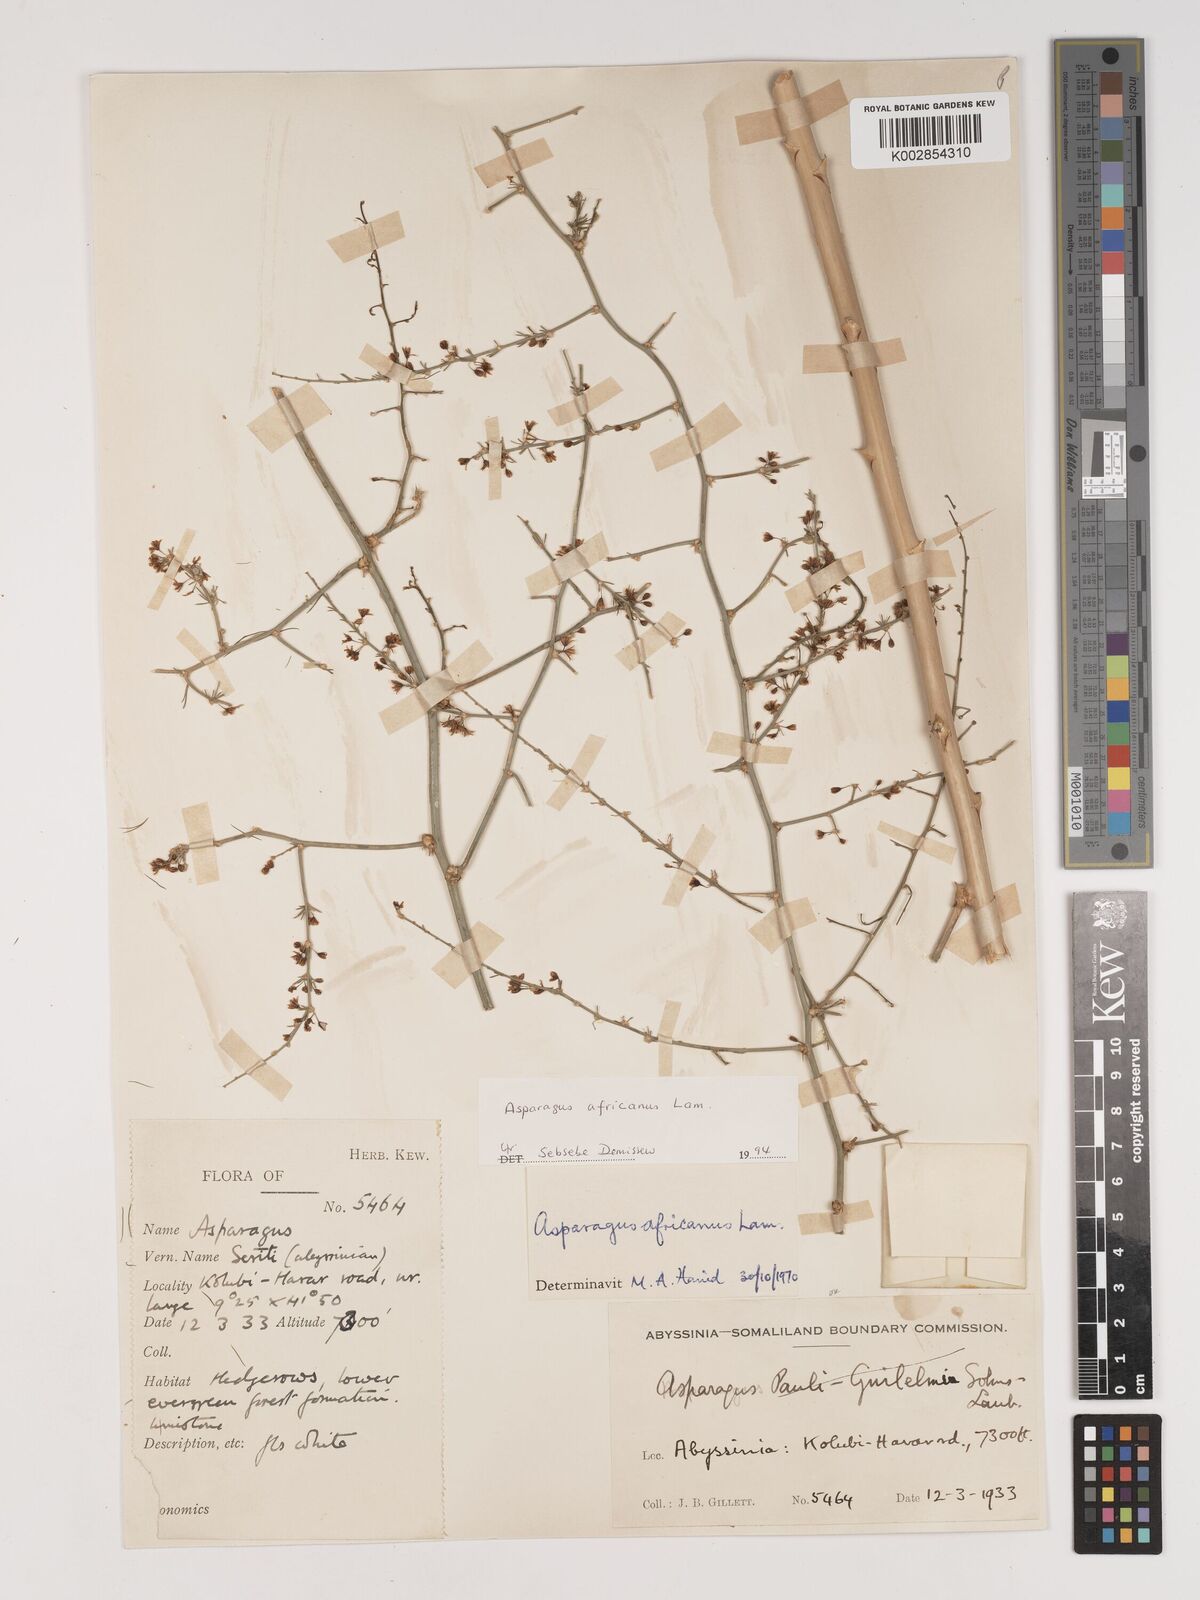 ROYAL BOTANIC GARDENS KEW
K002854310
Asparagus africanus Lam.
DET. Sebsebe Demissew 1994
Asparagus africanus Lam.
Determinavit M. A. Hamid 30/10/1970
HERB. KEW.
FLORA OF
No. 5464
Name Asparagus
Vern. Name Seriti (abyssinian)
Locality Kolubi-Harar road, nr.
Lange 9°25 x 41°50
Date 12 3 33 Altitude 7300'
Coll.
Habitat Hedgerows, lower
evergreen forest formation.
limestone
Description, etc: fls white
onomics
ABYSSINIA—SOMALILAND BOUNDARY COMMISSION.
Asparagus Pauli-Guilelmi Solms-
Laub.
Loc. Abyssinia: Kolubi-Harar rd., 7300ft.
Coll.: J. B. GILLETT. No. 5464 Date 12-3-1933
inches
centimeters
Density
Don Williams
M001010
Kew
Royal Botanic Gardens
0 1 2 3 4 5 6 7 8 9 10
cm
copyright reserved